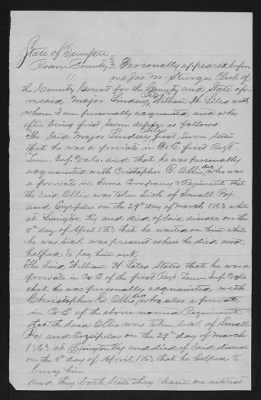 State of Tennessee
Roane County } Personally appeared before
me Jas. M. Sturges Clerk of
the County Court for the County and State afore
said Major Lindsey, William H. Liles with
whom I am personally acquainted, and who
after being first sworn depose as follows
The said Major Lindsey first sworn states
that he was a private in Co E first Regt
Tenn Inf Vols, and that he was personally
acquainted with Cristopher C. Ellis, who was
a private in same Company & Regiment that
the said Ellis was taken sick of Small Pox
and Erysipelas on the 29th day of March 1863 while
at Lexington Ky and died of said disease on the
8th day of April 1863 that he waited on him while
he was sick was present when he died and
helped to bury him
The said William H Liles states that he was a
private in Co E of the first Regt Tenn Inf Vols
that he was personally acquainted with
Christopher C. Ellis who also a private
in Co E of the above named Regiment
that the said Ellis was taken sick of Small
Pox and Erysipelas on the 29th day of March
1863 at Lexington Ky and died of said disease
on the 8th day of April 1863 that he helped to
bury him
And they both state they have no interest